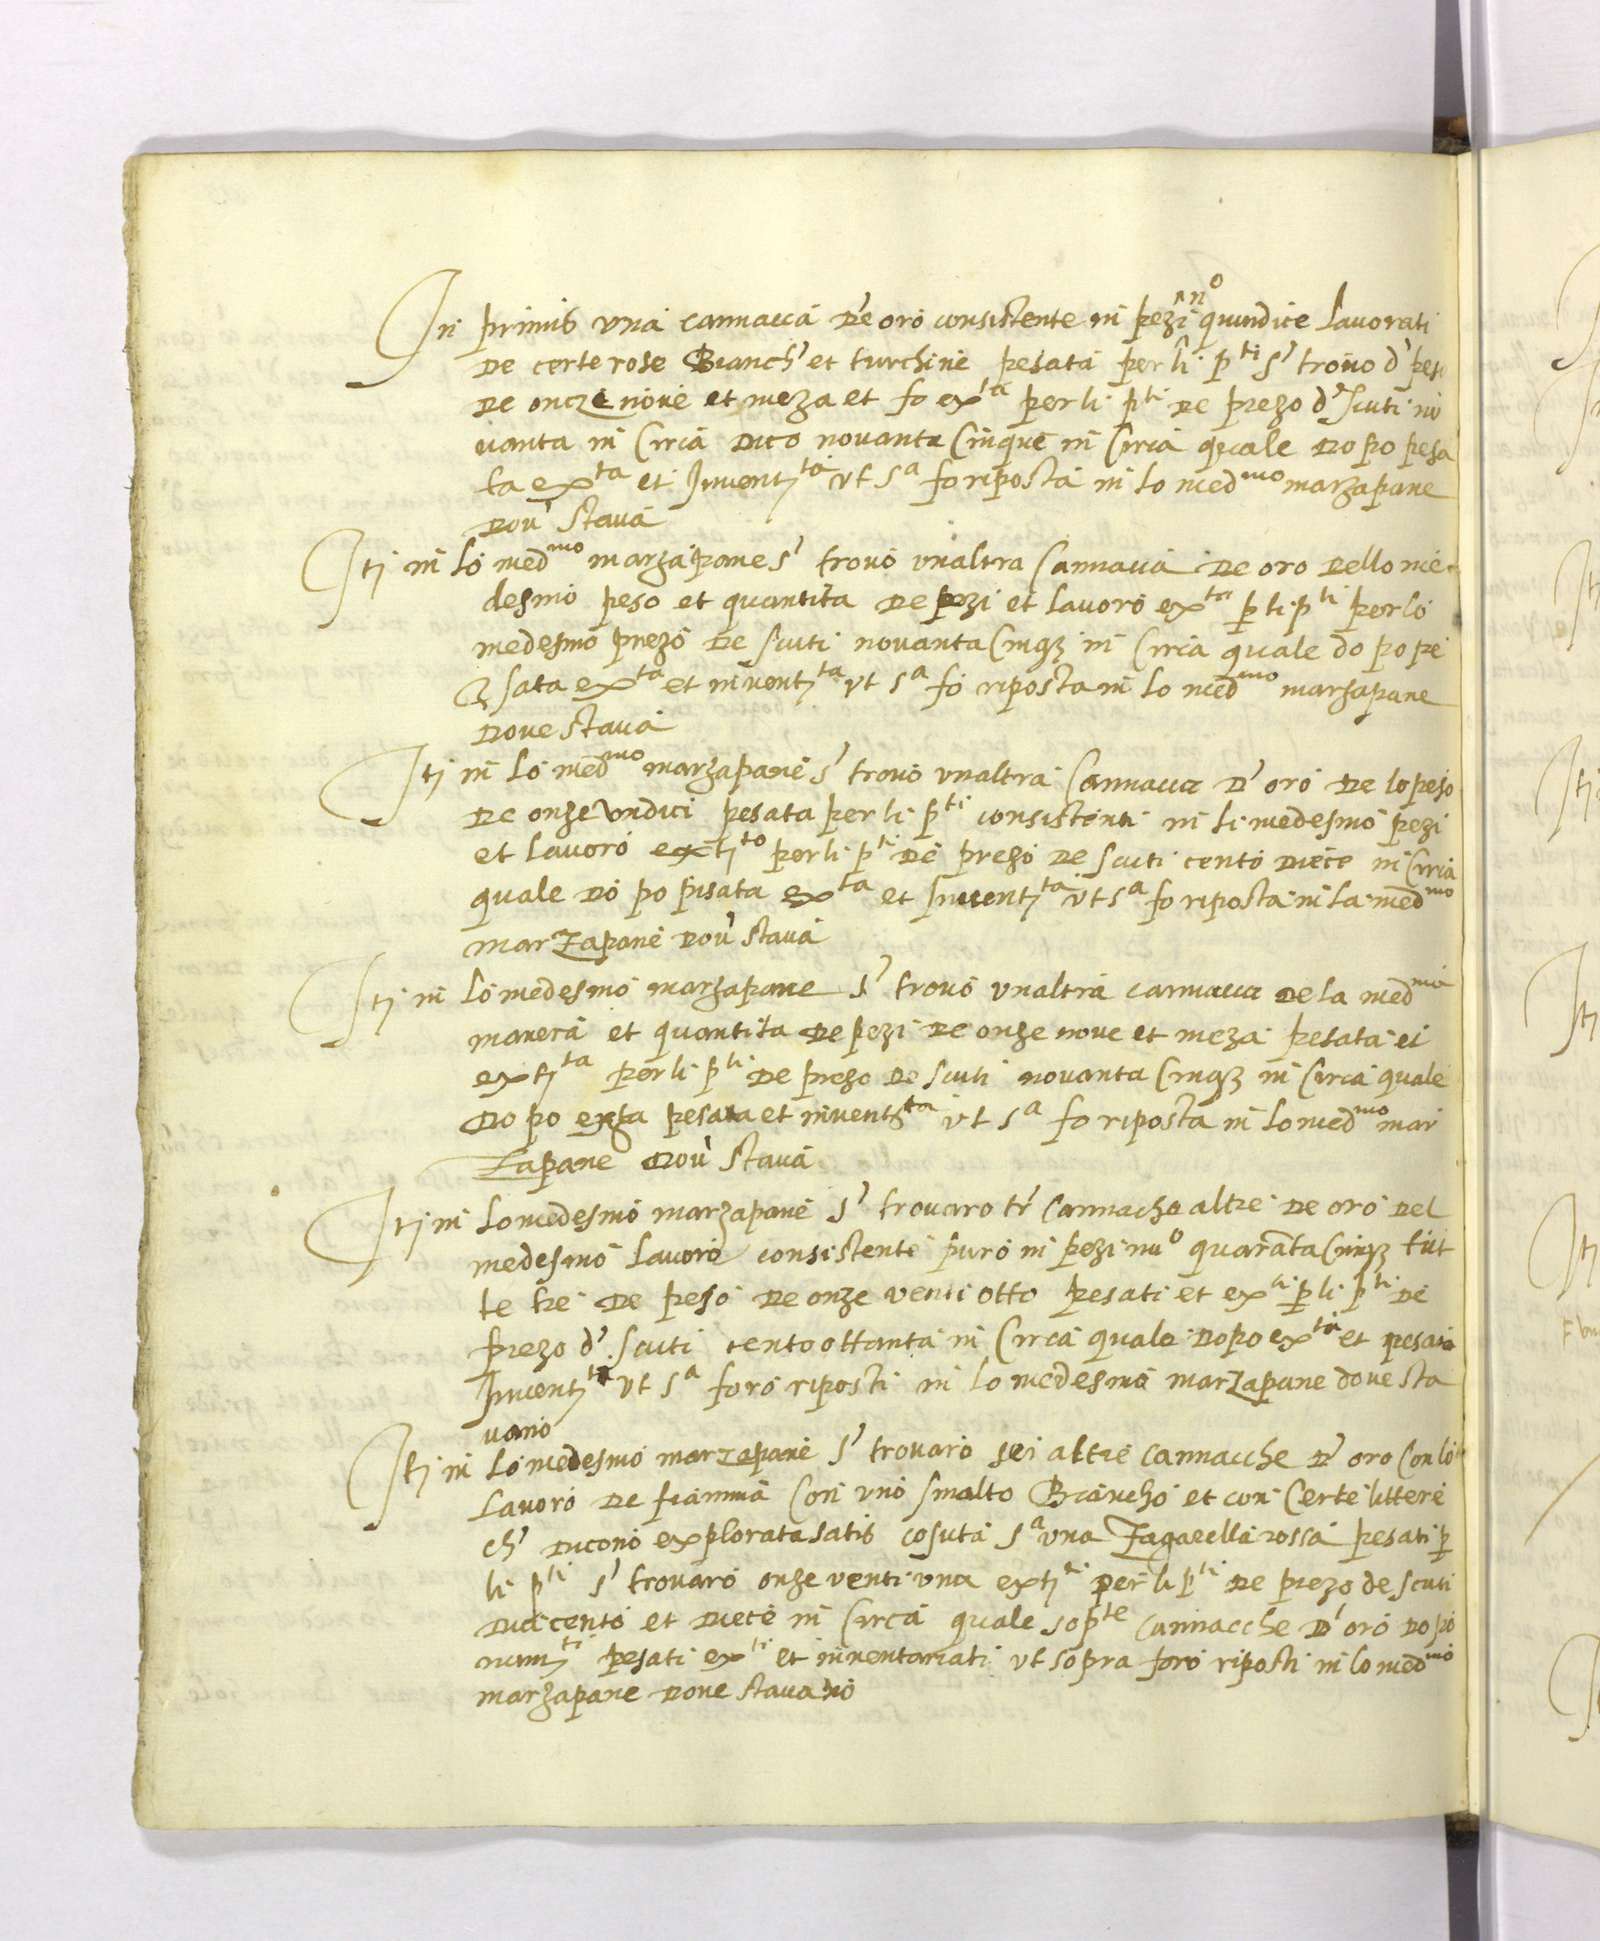 In primis una cannacca de oro consistente in pezi n° quindice lavorati
de certe rose Bianch' et turchine pesata per li p.ti s' trovò d' peso
de oncze nove et meza et fo ex.ta per li p.ti de prezo d' scuti no
vanta in Circa dico novanta Cinque in Circa quale dopo pesa
ta ex.ta et Invent.ta ut s.a fo riposta in lo med.mo marzapane
dov' stava
Iti in lo med.mo marzapane s' trovò unaltra Cannacca de oro dello me
desmo peso et quantita de pezi et lavoro ex.ta p li p.ti per lo
medesmo prezo de scuti novanta Cinq3 in Circa quale do po pe
sata ex.ta et invent.ta ut s.a fo riposta in lo med.mo marzapane
dove stava
Iti in lo med.mo marzapane s' trovò unaltra Cannacca d' oro de lo peso
de onze undici pesata per li p.ti consistenti in li medesmo pezi
et lavoro exti.to per li p.ti de prezo de scuti cento diece in Circa
quale do po pisata ex.ta et Invent.ta ut s.a fo riposta in la med.mo
marzapane dov' stava
Iti in lo medesmo marzapane s' trovò unaltra cannacca de la med.ma
manera et quantita de pezi de onze nove et meza pesata et
exti.ta per li p.ti de prezo de scuti novanta Cinq3 in Circa quale
do po exta pesata et invent.ta ut s.a fo riposta in lo med.mo mar
zapane dov' stava
Iti in lo medesmo marzapane s' trovaro tr' Cannache altre de oro del
medesmo lavoro consistente puro in pezi nu° quaranta Cinq3 tut
te tre de peso de onze venti otto pesati et ex.ti p li p.ti de
prezo d' scuti cento ottanta in Circa quale dopo ex.ta et pesata
Invent.ta ut s.a foro riposti in lo medesmo marzapane dove sta
vano
Iti in lo medesmo marzapane s' trovaro sei altre cannacche d' oro Con lo
lavoro de fiamma Con uno smalto Biancho et con Certe littere
ch' dicono explorata satis cosuta s.a una Zagarella rossa pesati p
li p.ti s' trovaro onze venti una exti.ti per li p.ti de prezo de scuti
ducento et diece in Circa quale sop.te cannacche d' oro dopo
num.ti pesati ex.ti et inventariati ut sopra foro riposti in lo med.mo
marzapane dove stavano